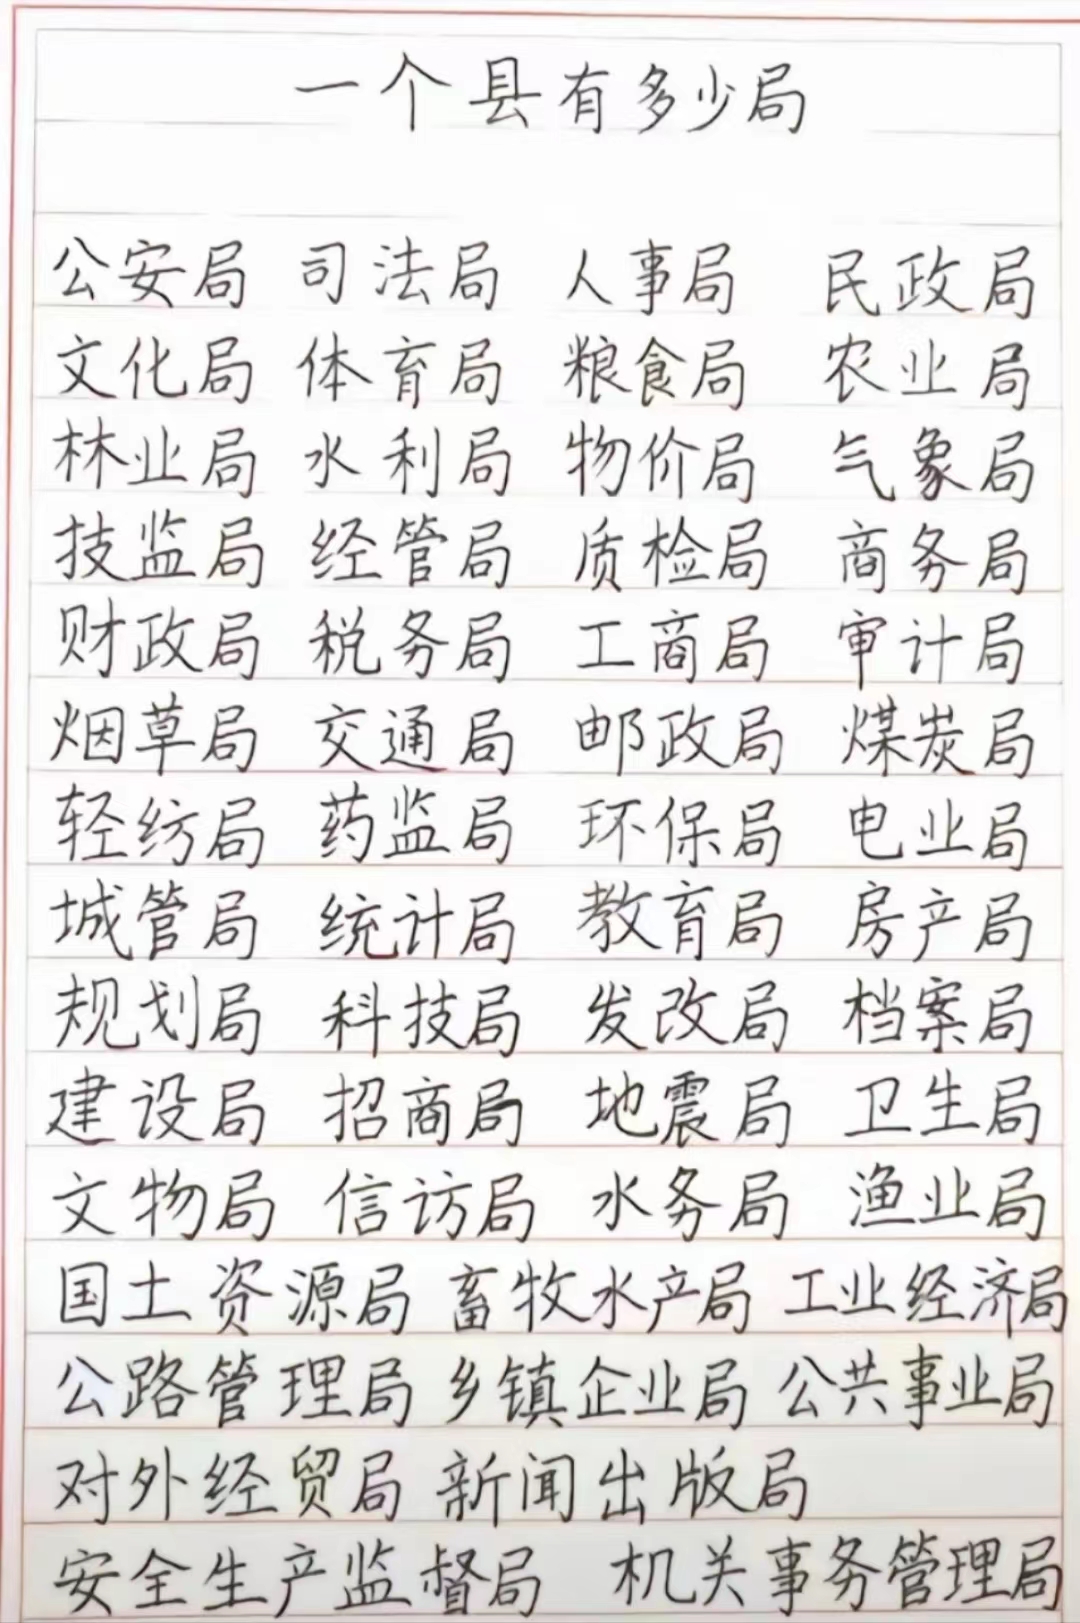 一个县有多少局
公安局 司法局 人事局 民政局
文化局 体育局 粮食局 农业局
林业局 水利局 物价局 气象局
技监局 经管局 质检局 商务局
财政局 税务局 工商局 审计局
烟草局 交通局 邮政局 煤炭局
轻纺局 药监局 环保局 电业局
城管局 统计局 教育局 房产局
规划局 科技局 发改局 档案局
建设局 招商局 地震局 卫生局
文物局 信访局 水务局 渔业局
国土资源局 畜牧水产局 工业经济局
公路管理局 乡镇企业局 公共事业局
对外经贸局 新闻出版局
安全生产监督局 机关事务管理局